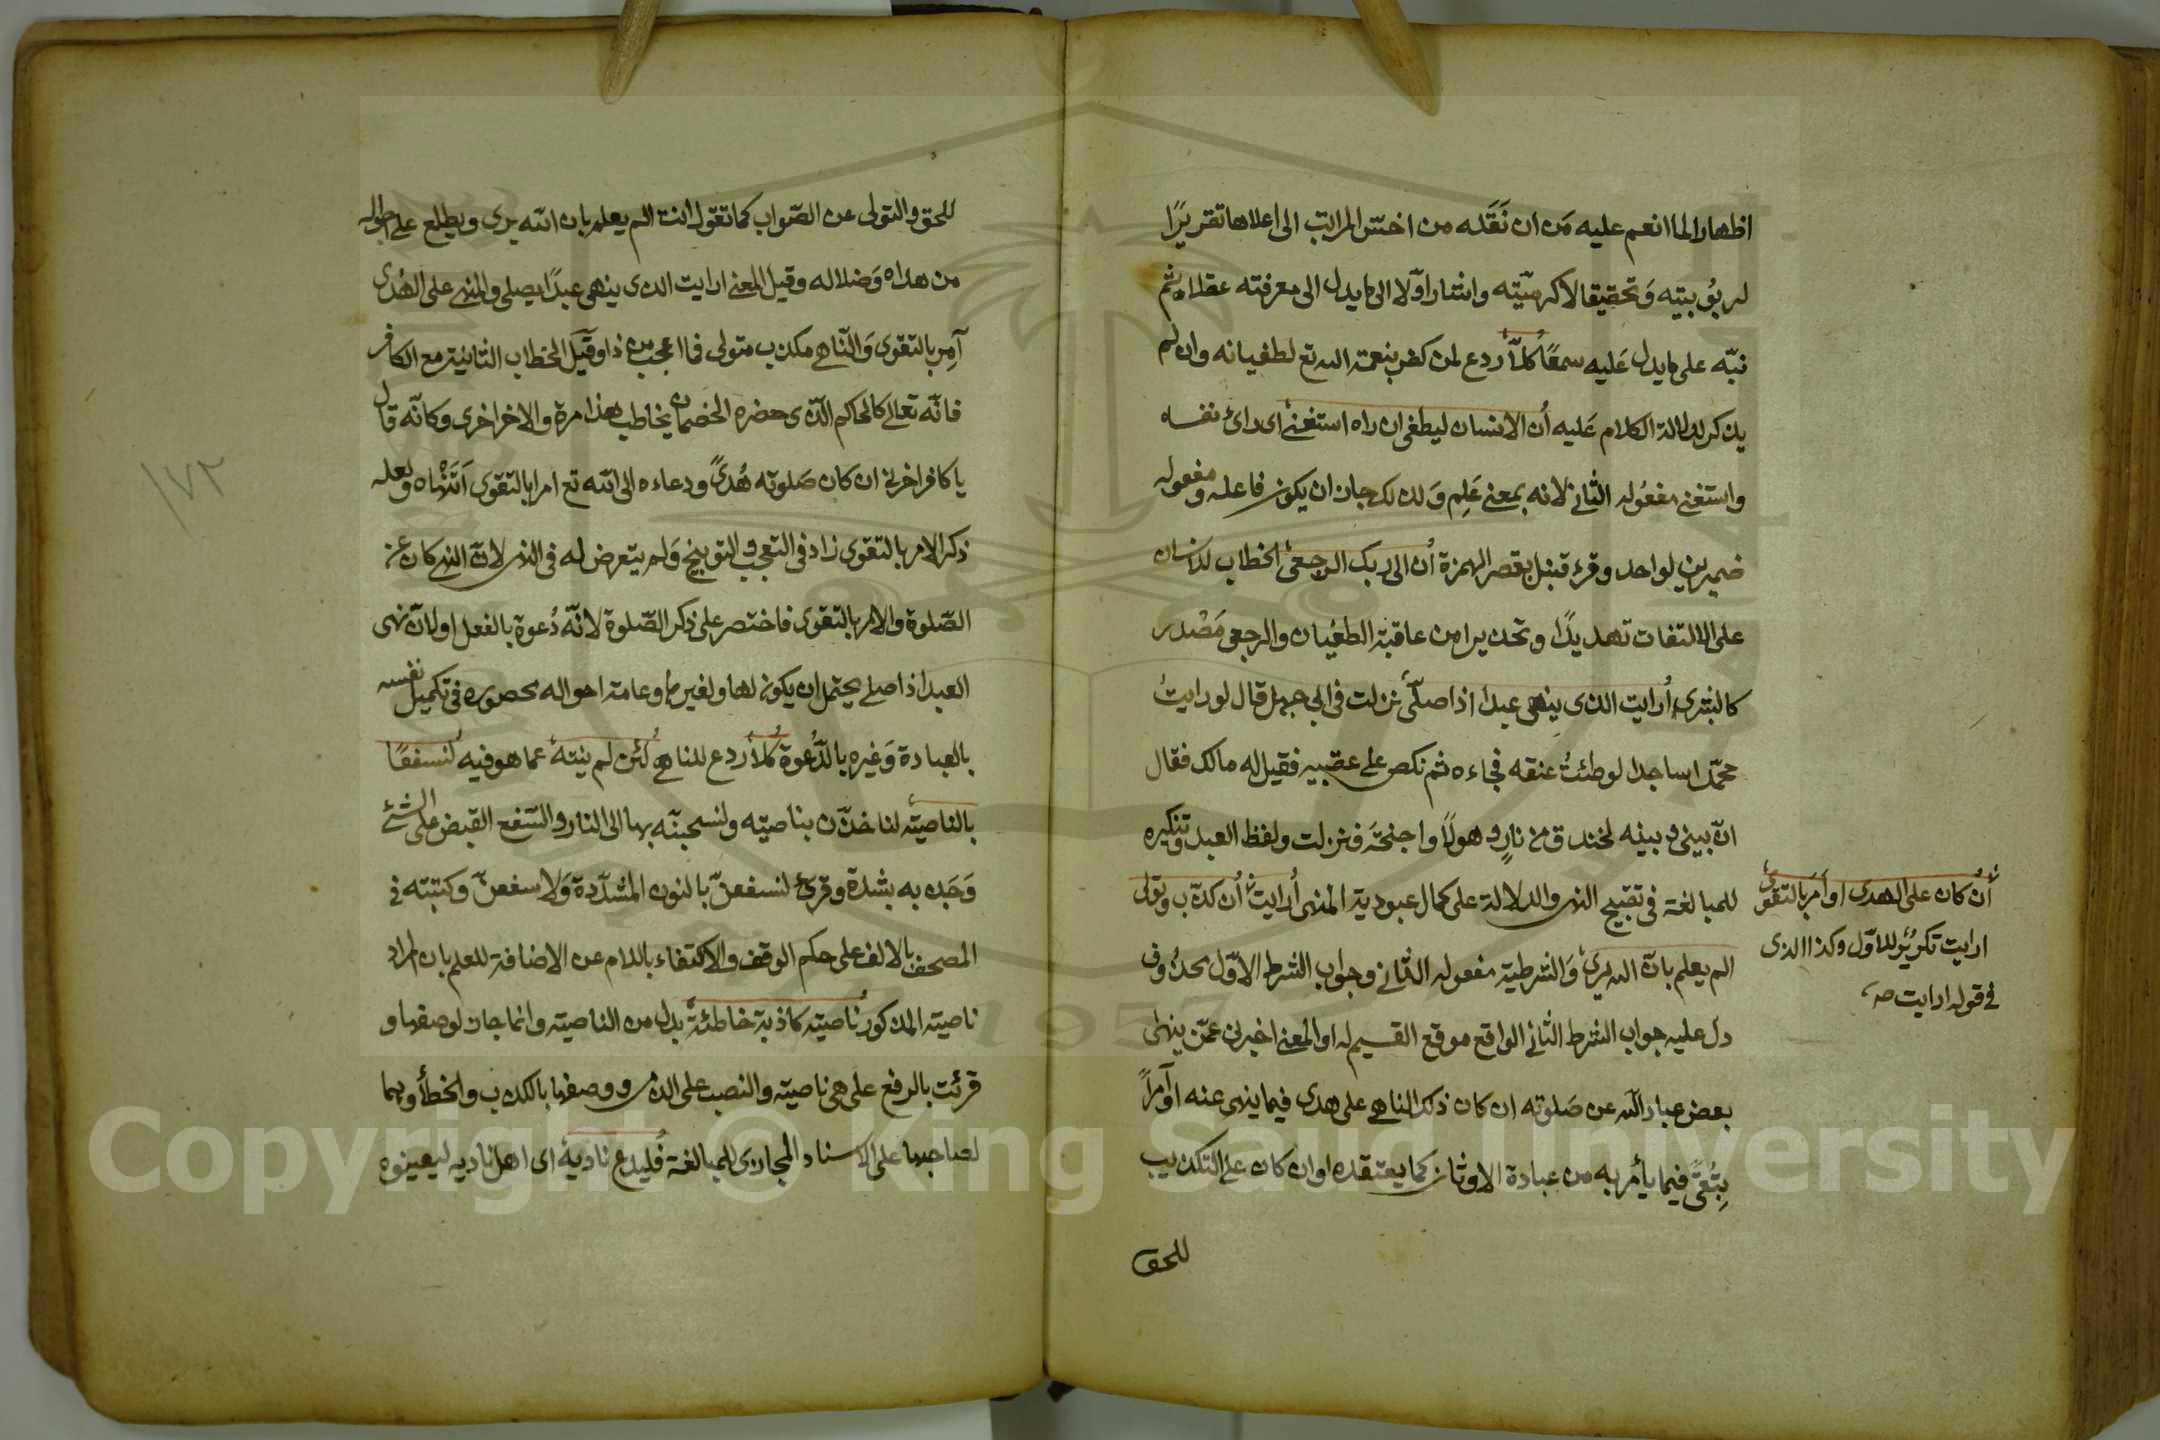 اظهارا لما انعم عليه من ان نقله من اخس المراتب الى اعلاها تقريرًا
لربوبيته وتحقيقا لاكرميته واشار اولا الى ما يدل الى معرفته عقلا ثم
نبّه على ما يدل عليه سمعًا كلّا ردع لمن كفر بنعمة الله تع لطغيانه وان لم
يذكر لدلالة الكلام عليه أن الانسان ليطغى ان راه استغنى اى راى نفسه
واستغنى مفعوله الثانى لانه بمعنى علِم ولذلك جاز ان يكون فاعله ومفعوله
ضميرين لواحد وقرء قنبل بقصر الهمزة أن الى ربك الرجعى الخطاب للانسان
على الالتفات تهديدًا وتحذيرا من عاقبة الطغيان والرجعى مَصْدر
كالبشرى أرايت الذى ينهى عبدا اذا صلّى نزلت فى ابى جهل قال لو رايتُ
محمّدا ساجدا لوطئتُ عنقه فجاءه ثم نكص على عقبيه فقيل له مالك فقال
انّ بينى وبينه لخندق من نارٍ وهولًا واجنحة فنزلت ولفظ العبد وتنكيره
للمبالغة فى تقبيح النهى والدلالة على كمال عبودية المنهى أرايت أن كذّب وتولى
أن كان على الهدى او أمَر بالتقوى
ارايت تكرير للاوّل وكذا الذى
فى قوله ارايت صح
الم يعلم بانّ الله يرى والشرطية مفعوله الثانى وجواب الشرط الاوّل محذوف
دل عليه جواب الشرط الثانى الواقع موقع القسيم له او المعنى اخبرنى عمّن ينهى
بعض عباد الله عن صَلوته ان كان ذلك الناهى على هدى فيما ينهى عنه او آمرًا
بتُقىً فيما يأمر به من عبادة الاوثان كما يعتقده او ان كان على التكذيب
للحق
للحق والتولى عن الصّواب كما تقول انت الم يعلم بان الله يرى ويطلع على احواله
من هداه وَضلاله وقيل المعنى ارايت الذى ينهى عبدًا يصلى والمنهى على الهُدى
آمِر بالتقوى وَالنّاهى مكذب متولى فما اعجب من ذا وقيل الخطاب الثانية مع الكافر
فانّه تعالى كالحاكم الّذى حضره الخصمان يخاطب هذا مرة والاخر اخرى وكانّه قال
يا كافر اخبرنى ان كان صَلوته هُدىً ودعاءه الى الله تع امرا بالتقوى اَتَنْهاه ولعله
ذكر الامر بالتقوى زاد فى التعجب والتوبيخ وَلم يتعرض له فى النهى لانّ النهى كان عن
الصّلوة والامر بالتقوى فاختصر على ذكر الصّلوة لانّه دُعوة بالفعل او لانّ نهى
العبد اذا صلى يحتمل ان يكون لها ولغيرها وعامة احواله محصوره فى تكميل نفسه
بالعبادة وَغيره بالدَّعوة كلّا ردع للناهى لئن لم ينته عما هو فيه لنسفعًا
بالناصية لناخذنّ بناصيته ولنسحبنّه بها الى النار والسّفع القبض على الشئ
وَجَذبه بشدة وقرئ لنسفعنّ بالنون المشدّدة وَلاسفعنّ وكتبته فى
المصحف بالالف على حكم الوقف والاكتفاء باللام عن الاضافة للعلم بان المراد
ناصية المذكور ناصية كاذبة خاطئة بدل من الناصية وانما جاز لوصفها و
قرئت بالرفع على هى ناصية والنصب على الذم ووصفها بالكذب والخطأ وهما
لصاحبها على الاسناد المجازى للمبالغة فليدع ناديه اى اهل ناديه ليعينوه
١٧٢
Copyright © King Saud University
1957